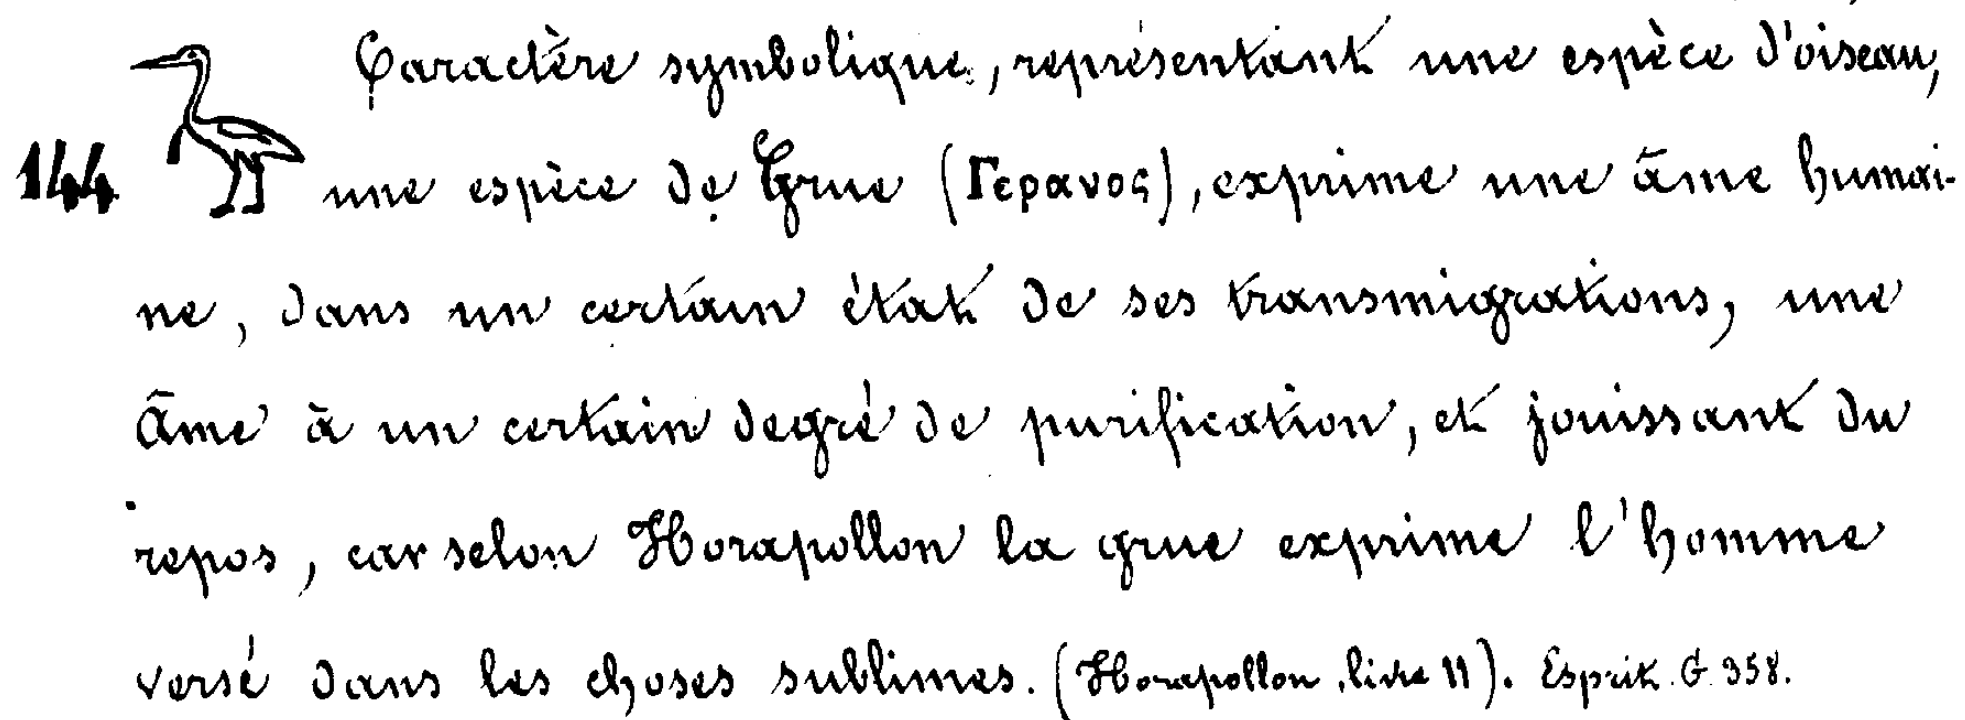 Caractère symbolique, représentant une espèce d'oiseau,
144 une espèce de Grue (Γερανος), exprime une âme humai-
ne, dans un certain état de ses transmigrations, une
âme à un certain degré de purification, et jouissant du
repos, car selon Horapollon la grue exprime l'homme
versé dans les choses sublimes. (Horapollon, livre II). Esprit. G. 358.